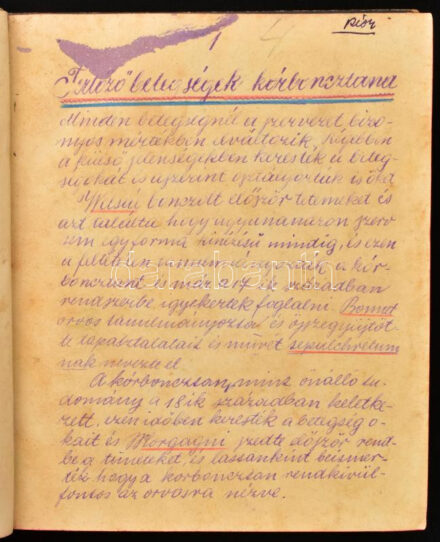 piòr
1
A fertőző betegségek kórbonctana
Minden betegségnél a szervezet bizo-
nyos mértékben elváltozik. Régebben
a külső jelenségekben keresték a beteg-
ségokát és aszerint osztályozták is őket
bonczolt először tetemeket és
azt találta hogy ugyanazon szerv
sem egyforma kinézésű mindig, és ezen
a kór-
boncztant és már a 17 ik században
rendszerbe igyekeztek foglalni. Bonnet
orvos tanulmányozta és összegyűjtöt-
te tapasztalatait és művét sepulchretum
nak nevezte el.
A kórboncztan, mint önálló tu-
domány a 18 ik században keletke-
zett, ezen időben keresték a betegség o-
kait és Morgagni szedte először rend-
be a tüneteket, és lassanként beismer-
ték hogy a kórboncztan rendkívül
fontos az orvosra nézve.
darabanth